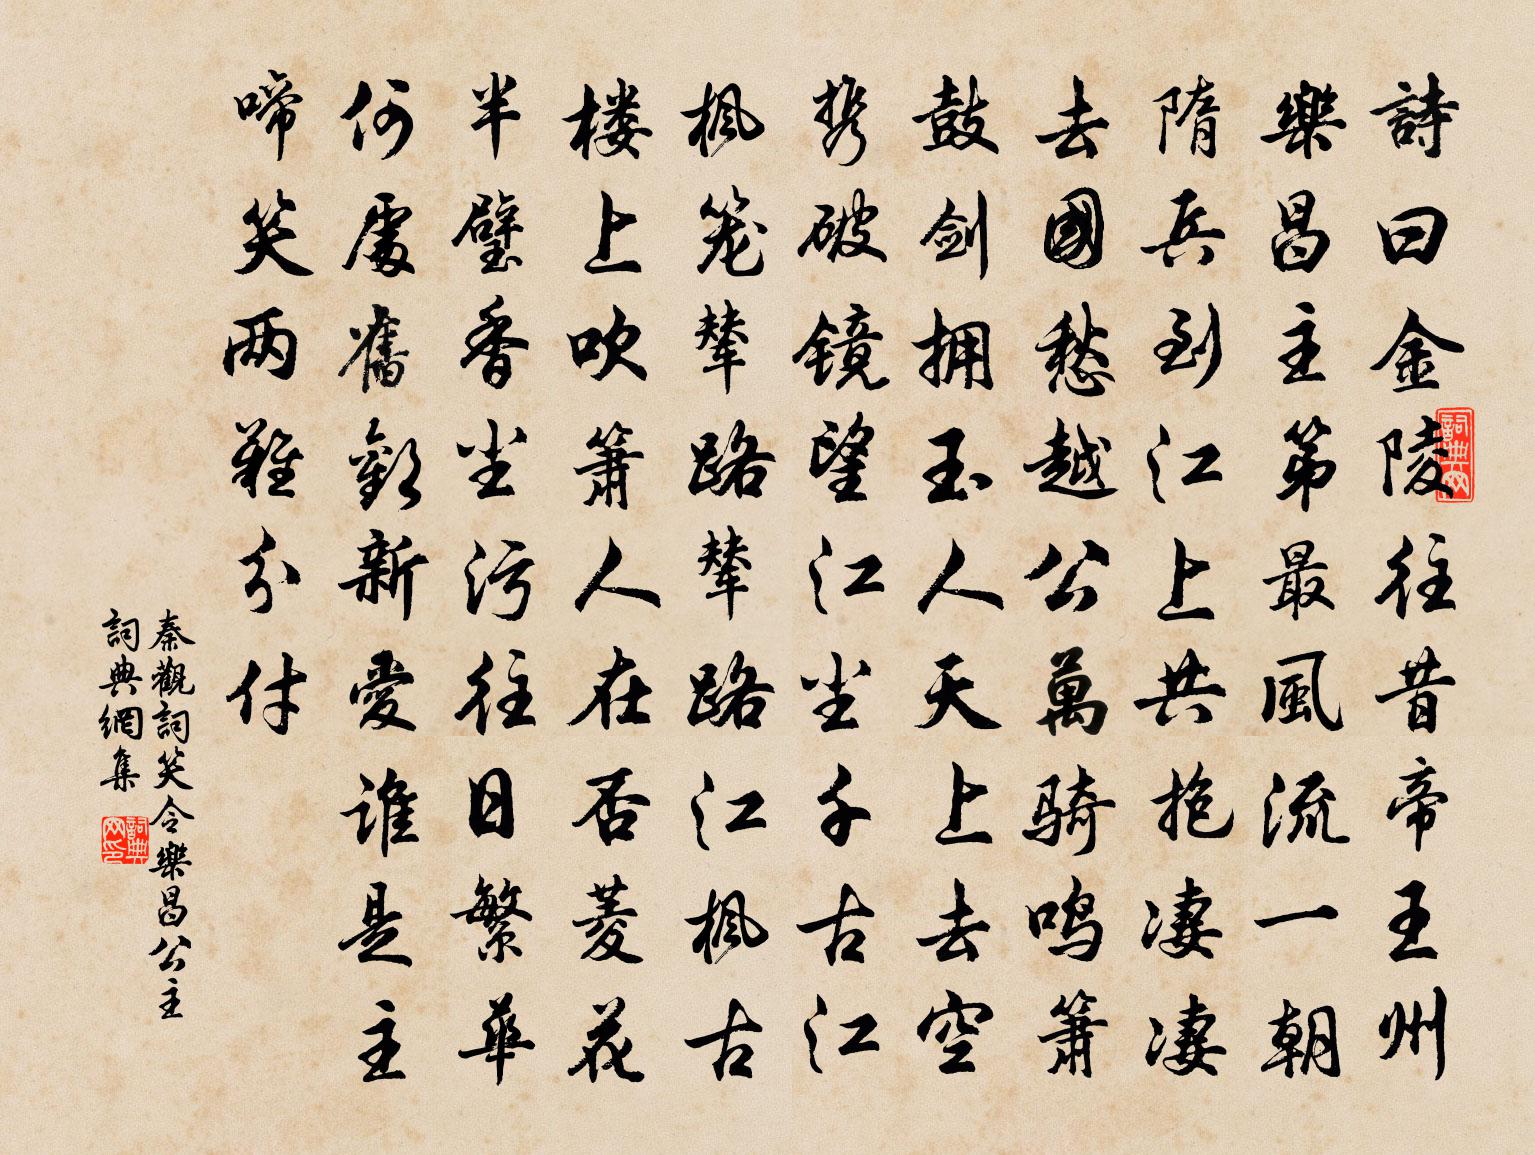 詩曰金陵往昔帝王州
樂昌主第最風流一朝
隋兵到江上共抱凄凄
去國愁越公萬騎鳴簫
鼓剑拥玉人天上去空
携破镜望江尘千古江
枫笼辇路辇路江枫古
楼上吹箫人在否菱花
半璧香尘污往日繁華
何處舊歡新愛誰是主
啼笑两難分付
秦觀詞笑令樂昌公主
詞典網集
詞典网
詞典网印